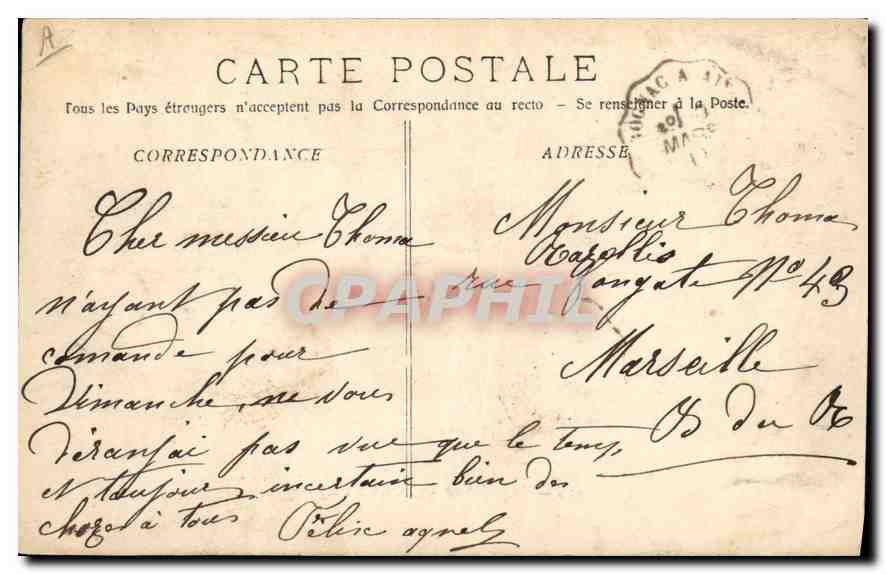 A
CARTE POSTALE
Tous les Pays étrangers n'acceptent pas la Correspondance au recto – Se renseigner à la Poste.
CORRESPONDANCE
Cher messieu Thoma
n'ayant pas de
comande pour
Dimanche, ne vous
déranjai pas vue que le temp
et toujour incertain bien des
choze à tous Félix agnel
ADRESSE
Monsieur Thoma
rue fongate No 43
Marseille
B du R
MARS
CPAPHIL